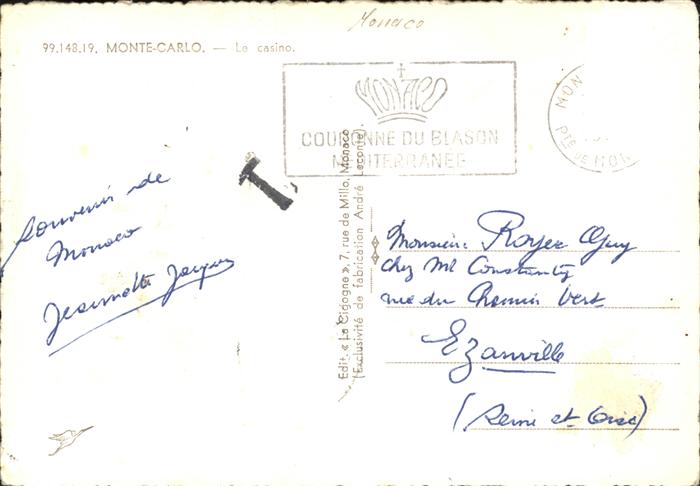 Monaco
99.148.19. MONTE-CARLO. — Le casino.
MONACO
COURONNE DU BLASON
MEDITERRANEE
MON
Pté DE MON
T
Souvenir de
Monaco
Jeannette Jacques
Edit. « La Cigogne », 7, rue de Millo, Monaco
(Exclusivité de fabrication André Leconte).
Monsieur Royer Guy
chez Mr
rue du Chemin Vert
Ezanville
(Seine et Oise)